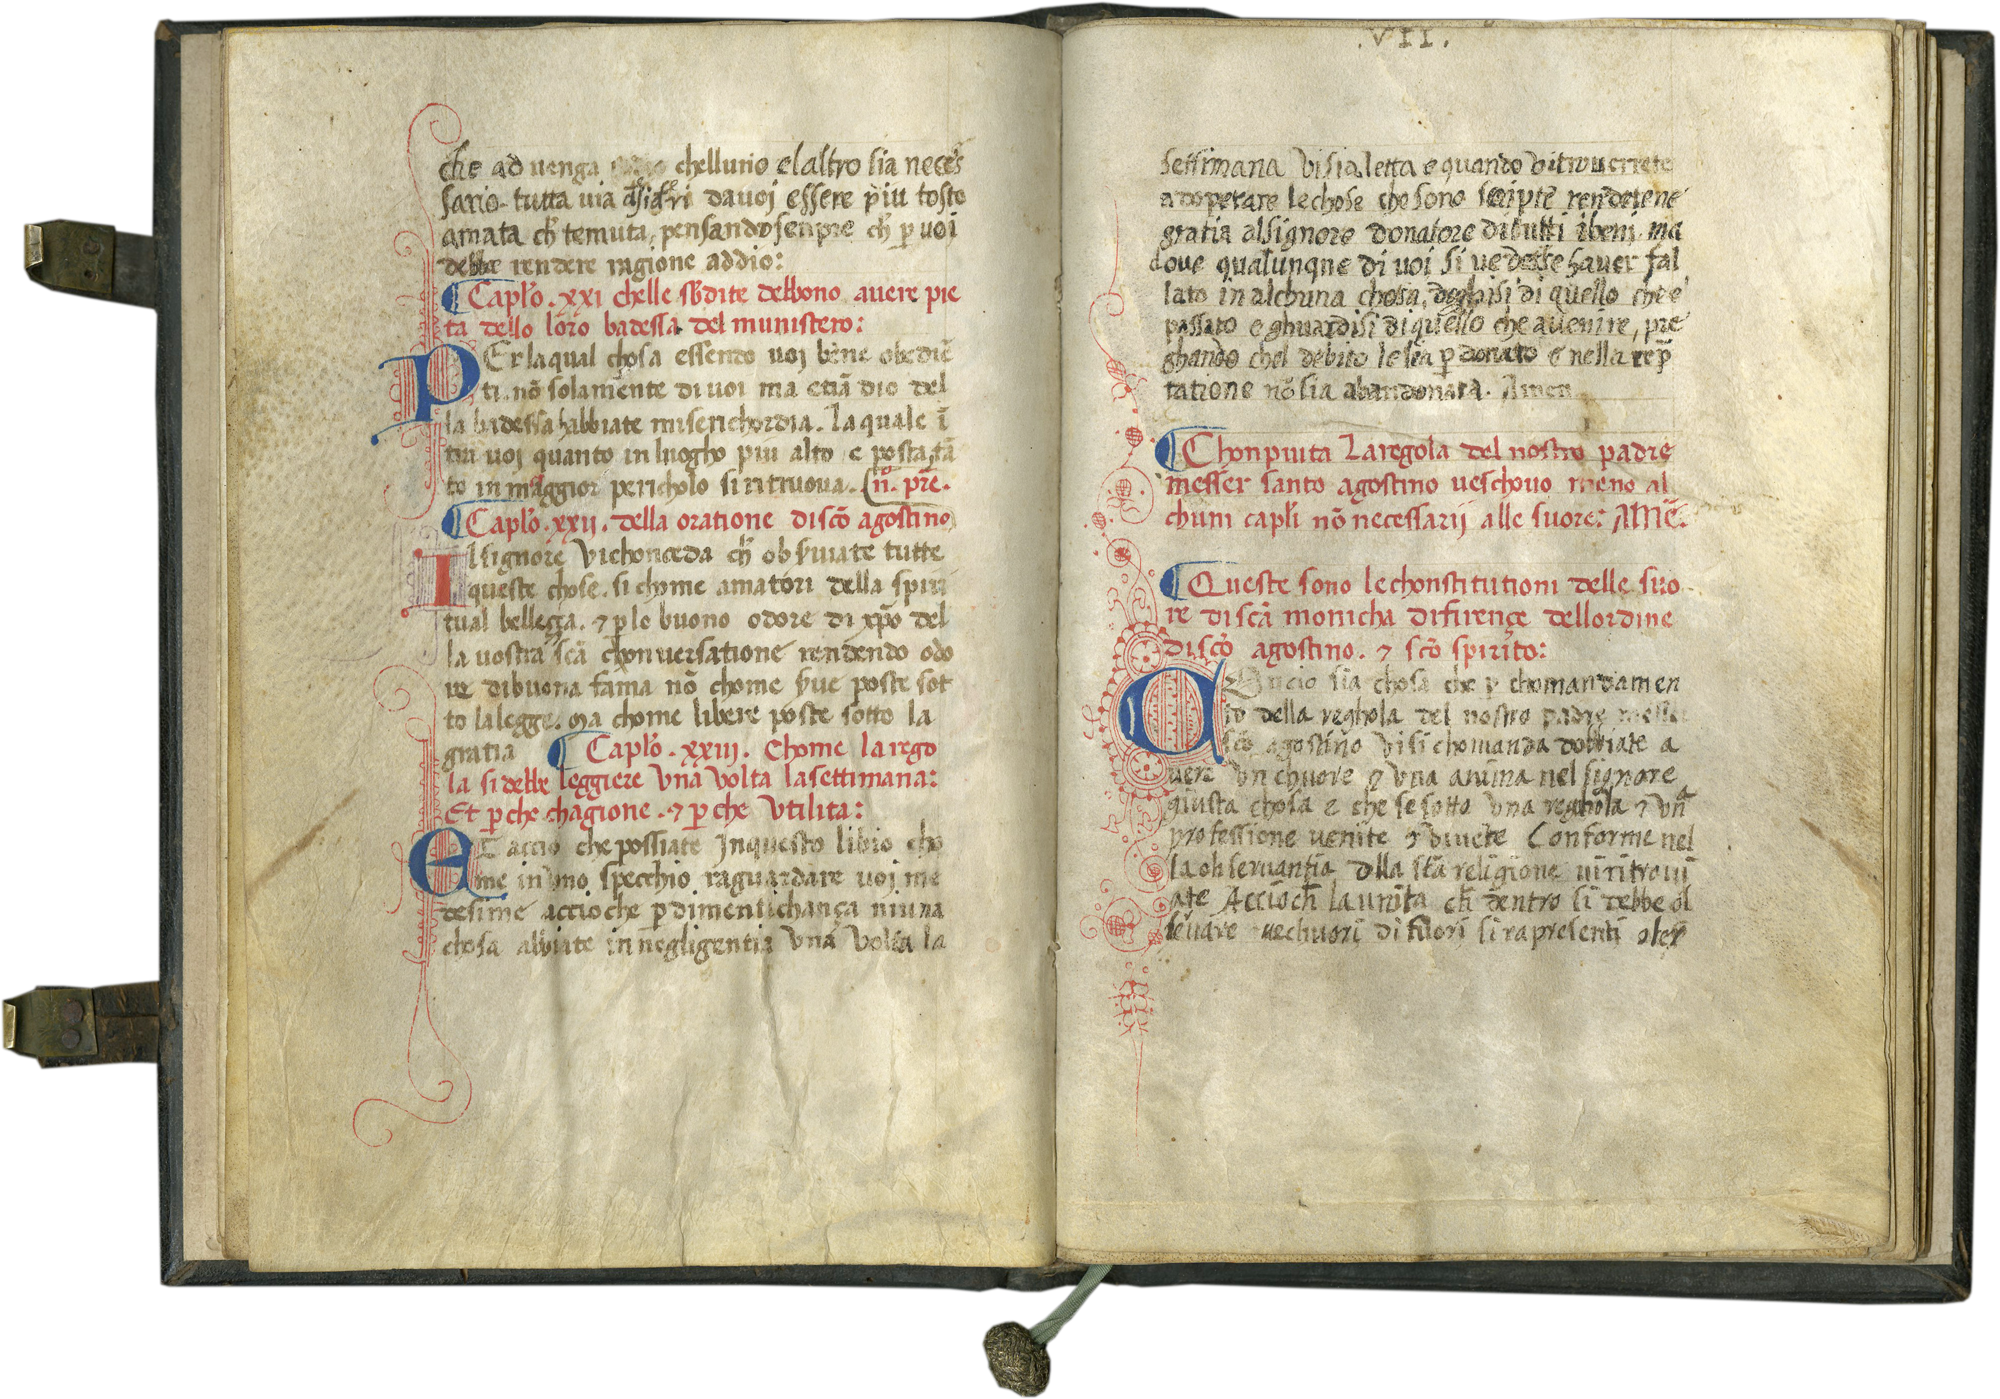 che ad venga chelluno elaltro sia neces
sario. tutta uia dauoi essere piu tosto
amata ch̄ temuta, pensando senpre ch̄ ꝑ uoi
debbe rendere ragione addio:
Capl̄o. xxi chelle sb̄dite debbono auere pie
ta dello loro badessa del munistero:
PEr laqual chosa essendo uoi bene obediē
ti. nō solamente di uoi ma etiā dio del
la badessa habbiate miserichordia. La quale ī
tra uoi quanto in luogho piu alto e posta tā
to in maggior pericholo si ritruoua. n̄o. pr̄e.
Capl̄o. xxii. della oratione di scō agostino
Il signore vi chonceda ch̄ obseruiate tutte
queste chose. si chome amatori della spiri
tual bellegga. ⁊ ꝑ lo buono odore di xp̄o del
la uostra scā chonuersatione rendendo odo
re di buona fama nō chome serue poste sot
to lalegge. ma chome libere poste sotto la
gratia Capl̄o. xxiii. Chome la rego
la si debbe leggiere vna volta la settimana:
Et ꝑ che chagione. ⁊ ꝑ che vtilita:
ET accio che possiate Inquesto libro cho
me in vno specchio raguardare uoi me
desime accio che ꝑ dimentichança niuna
chosa abbiate in negligentia vna volta la
.VII.
settimana vi sia letta e quando vi trouerrete
adoperare le chose che sono scripte rendetene
gratia al signore donatore di tutti i beni. ma
doue qualunque di uoi si uedesse hauer fal
lato in alchuna chosa, doghisi di quello che e
passato e ghuardisi di quello che auenire, pre
ghando chel debito le sia ꝑ donato e nella tep̄
tatione nō sia abandonata. Amen
Chonpiuta La regola del nostro padre
messer santo agostino ueschouo meno al
chuni capl̄i nō necessarij alle suore: AMĒ.
Queste sono le chonstitutioni delle suo
re di scā monicha di firençe dell ordine
di scō agostino. ⁊ scō spirito:
Oncio sia chosa che ꝑ chomandamen
to della reghola del nostro padre messer
scō agostino vi si chomanda dobbiate a
uere vn chuore ⁊ vna anima nel signore
giusta chosa e che se sotto vna reghola ⁊ vna
professione uenite ⁊ viuete Conforme nel
la obseruantia della scā religione ui ritroui
ate Accioch̄ la unita ch̄ dentro si debbe ob
seruare ne chuori di fuori si rapresenti